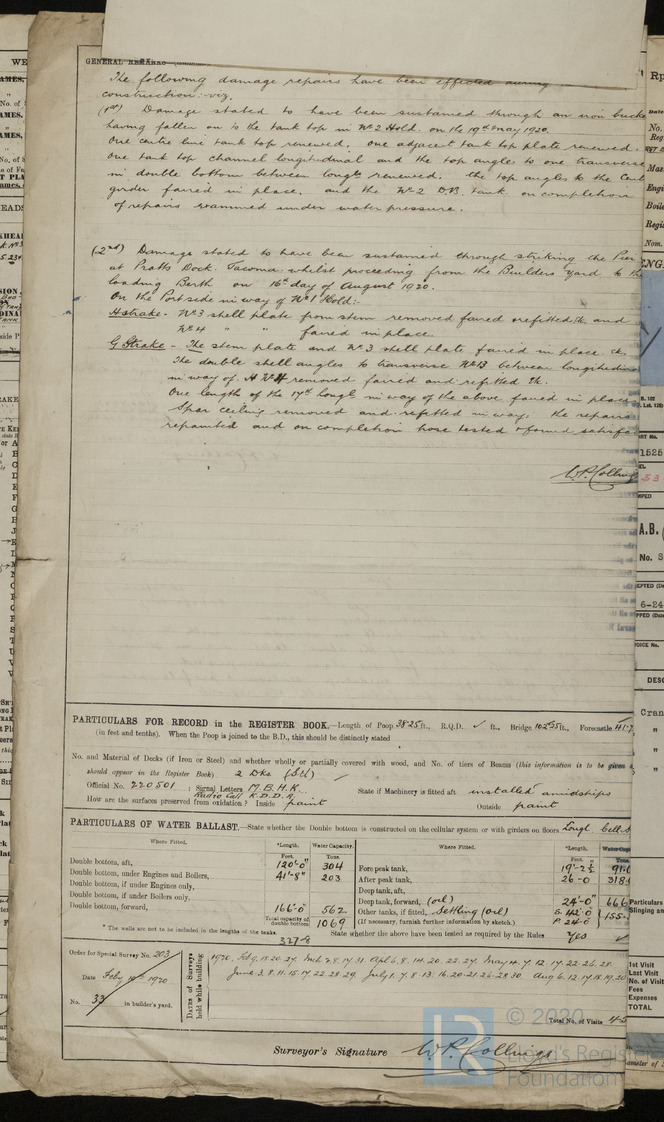 GENERAL REMARKS
The following damage repairs have been effected during
construction:- viz,
(1st) Damage stated to have been sustained through an iron bucke
having fallen on to the tank top in No 2 Hold. on the 19th May 1920.
One centre line tank top renewed. One adjacent tank top plate renewed.
One tank top channel longitudinal and the top angles to one transverse
in double bottom between longls renewed. the top angles to the Cent
girder faired in place. and the No 2 D.B. tank on completion
of repairs examined under water pressure.
(2nd) Damage stated to have been sustained through striking the Pier
at Pratts Dock. Tacoma whilst proceeding from the Builders Yard to the
loading Berth on 16th day of August 1920.
On the Port side in way of No 1 Hold:-
H strake - No 3 shell plate from stem removed faired & refitted and
No 4 " " faired in place
G Strake - The stem plate and No 3 shell plate faired in place
The double shell angles to transverse No 13 between longitudin
in way of H No 4 removed faired and refitted
One length of the 17th longl in way of the above faired in place
Spar ceiling removed and refitted in way. the repairs
repainted and on completion hose tested & found satisfa
W.P. Colling
PARTICULARS FOR RECORD in the REGISTER BOOK.—Length of Poop 38.25 ft., R.Q.D. ✓ ft., Bridge 102.55 ft., Forecastle 41.7
(in feet and tenths). When the Poop is joined to the B.D., this should be distinctly stated
No. and Material of Decks (if Iron or Steel) and whether wholly or partially covered with wood, and No. of tiers of Beams (this information is to be given a
should appear in the Register Book) 2 Dks (Stl)
Official No. 220501 ; Signal Letters M.B.H.K. State if Machinery is fitted aft installed amidships
Radio Call K.D.D.A.
How are the surfaces preserved from oxidation? Inside paint Outside paint
PARTICULARS OF WATER BALLAST.—State whether the Double bottom is constructed on the cellular system or with girders on floors Longl. cell.
Where Fitted. *Length. Water Capacity. Where Fitted. *Length. Water Cap
Feet. Tons. Feet. Tons
Double bottom, aft, 120'-0" 304 Fore peak tank, 19'-2½ 91.
Double bottom, under Engines and Boilers, 41'-8" 203 After peak tank, 26-0 318
Double bottom, if under Engines only, Deep tank, aft,
Double bottom, if under Boilers only, Deep tank, forward, (oil) 24'-0" 666
Double bottom, forward, 166'-0 562 Other tanks, if fitted, Settling (oil) S. 42'-0 P. 24-0 155
Total capacity of double bottom 1069 (If necessary, furnish further information by sketch.)
* The wells are not to be included in the lengths of the tanks. 327-8 State whether the above have been tested as required by the Rules Yes
Order for Special Survey No. 203
Date Feby 19th 1920
No. 33 in builder's yard.
Dates of Surveys held while building
1920. Feb 9. 18. 20. 27. Mch 2. 8. 17. 31. Apl 6. 8. 14. 20. 22. 27. May 4. 7. 12. 17. 22. 26. 28.
June 3. 8. 11. 15. 17. 22. 28. 29. July 1. 7. 8. 13. 16. 20. 21. 26. 28. 30. Aug 6. 12. 17. 18. 19. 20
Total No. of Visits 45
Surveyor's Signature W.P. Collings
© 2020
Lloyd's Register
Foundation
1525
A.B.
No. S
6-24
Cran
Particulars
Slinging an
1st Visit
Last Visit
No. of Visits
Fees
Expenses
TOTAL